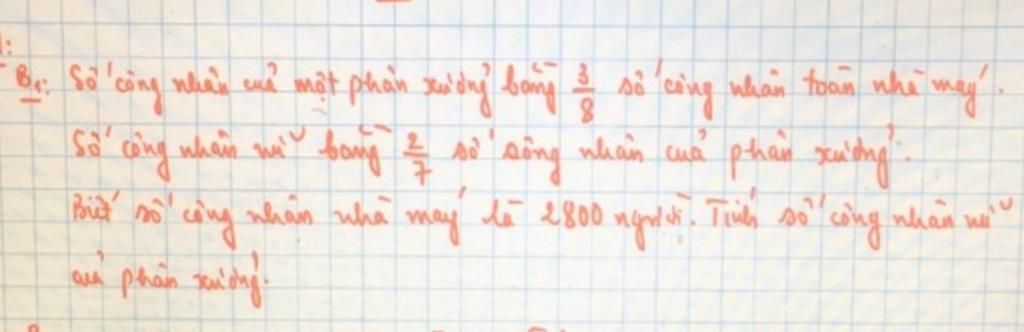 B₁: Số công nhân của một phân xưởng bằng 3/8 số công nhân toàn nhà máy.
Số công nhân nữ bằng 2/7 số công nhân của phân xưởng.
Biết số công nhân nhà máy là 2800 người. Tính số công nhân nữ
của phân xưởng.